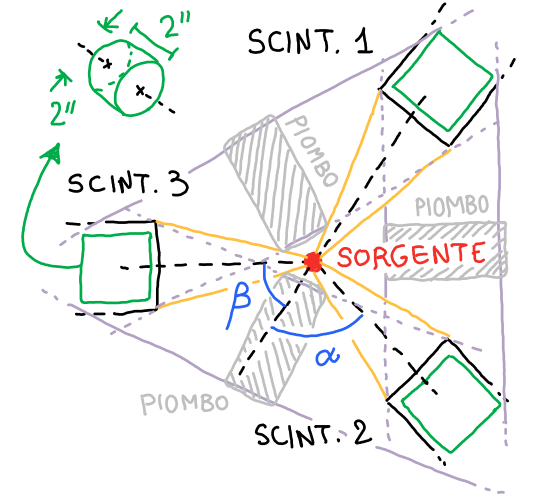 2"
2"
SCINT. 1
PIOMBO
SCINT. 3
PIOMBO
SORGENTE
β
α
PIOMBO
SCINT. 2